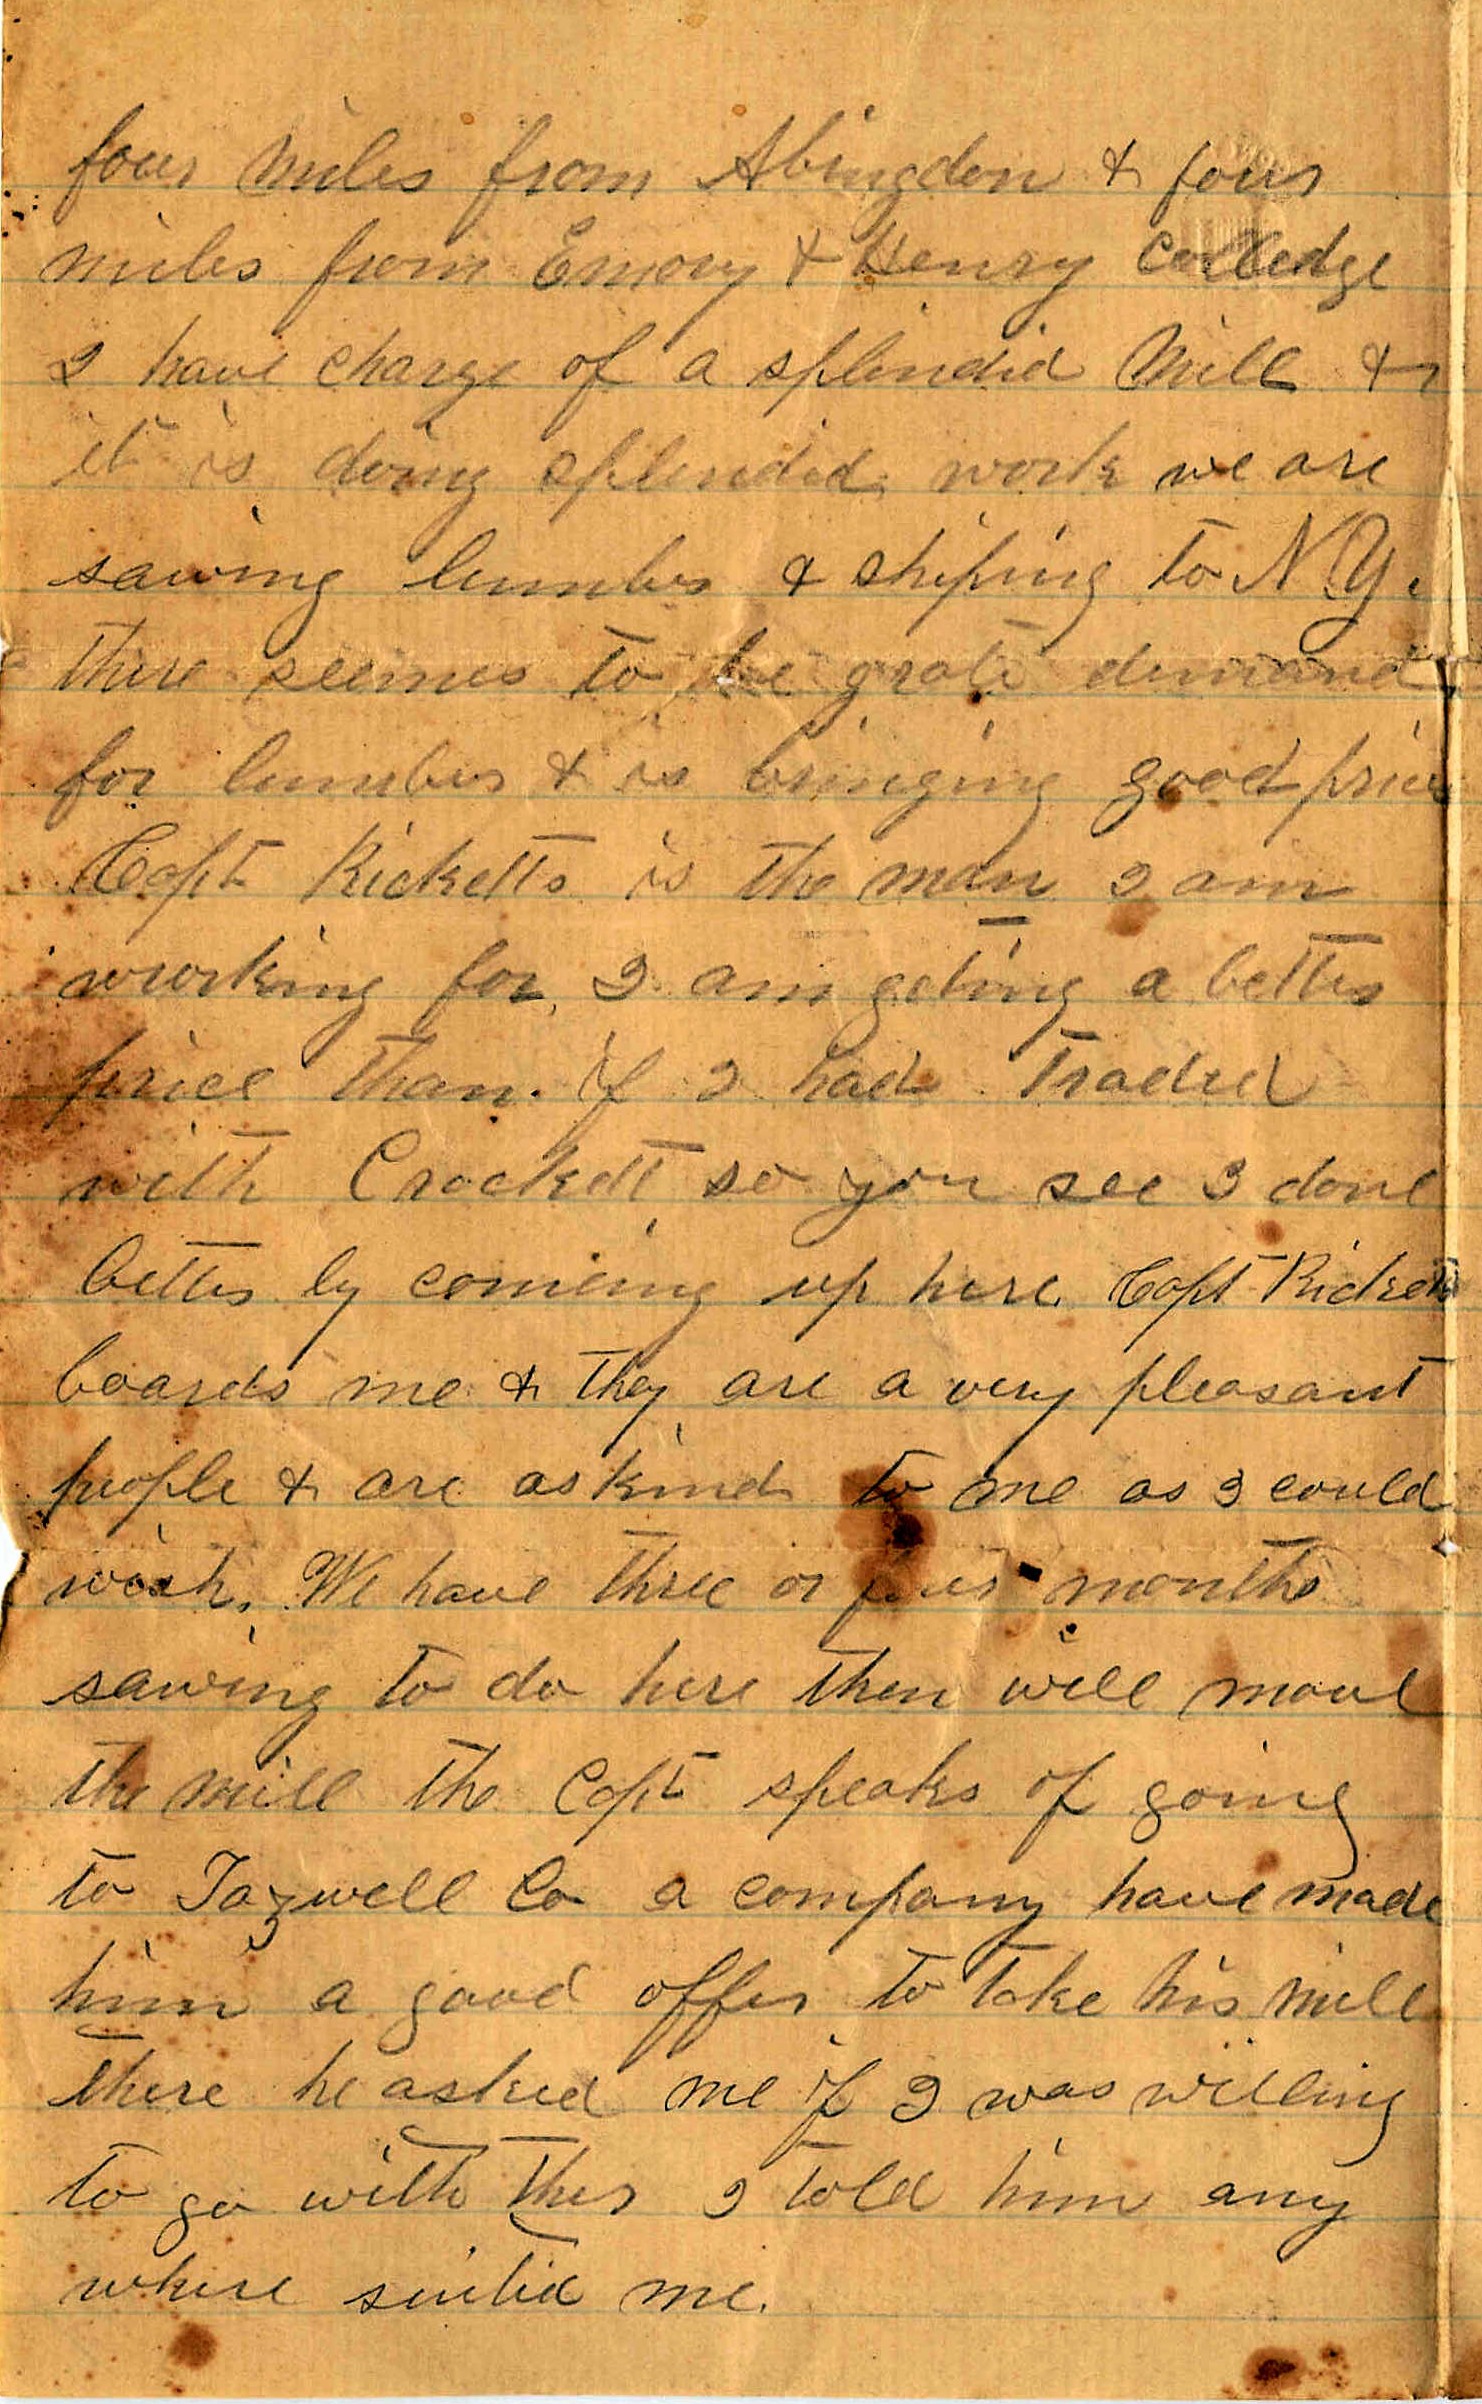 four miles from Abingdon & four
miles from Emory & Henry Colledge
I have charge of a splendid Mill &
it is doing splendid work we are
sawing lumber & shiping to N.Y.
there seemes to be grate demand
for lumber & is bringing good price
Capt Ricketts is the man I am
working for, I am geting a better
price than. if I had traded
with Crockett so you see I done
better by comeing up here. Capt Ricketts
boards me & they are a very pleasant
people & are as kind to me as I could
wish. We have three or four months
sawing to do here then will move
the mill the Capt speaks of going
to Tazwell Co a company have made
him a good offer to take his mill
there he asked me if I was willing
to go with ther I told him any
where suited me.